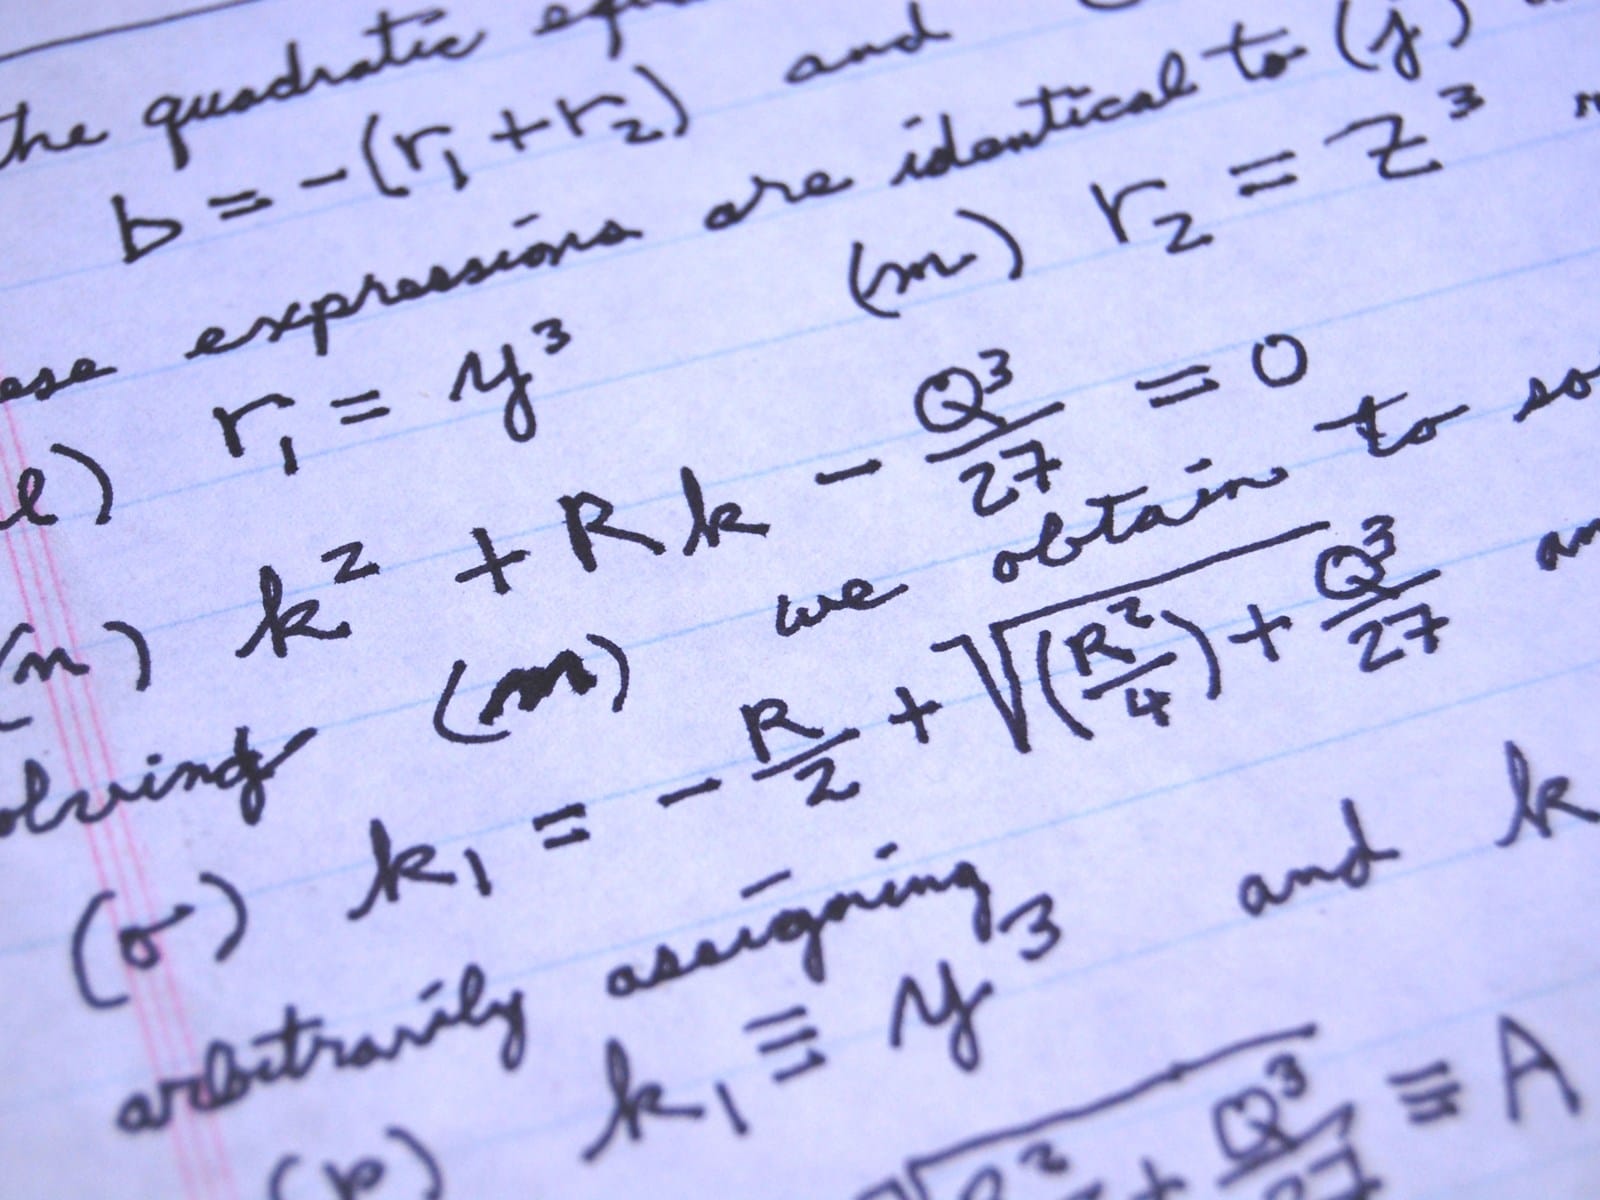 the quadratic
b = -(r₁ + r₂) and
expressions are identical to (j)
l) r₁ = y³ (m) r₂ = z³
(n) k² + Rk - Q³/27 = 0
olving (m) we obtain to so
(o) k₁ = - R/2 + √((R²/4) + Q³/27)
arbitrarily assigning
(p) k₁ ≡ y³ and k
√ R² + Q³/27 ≡ A